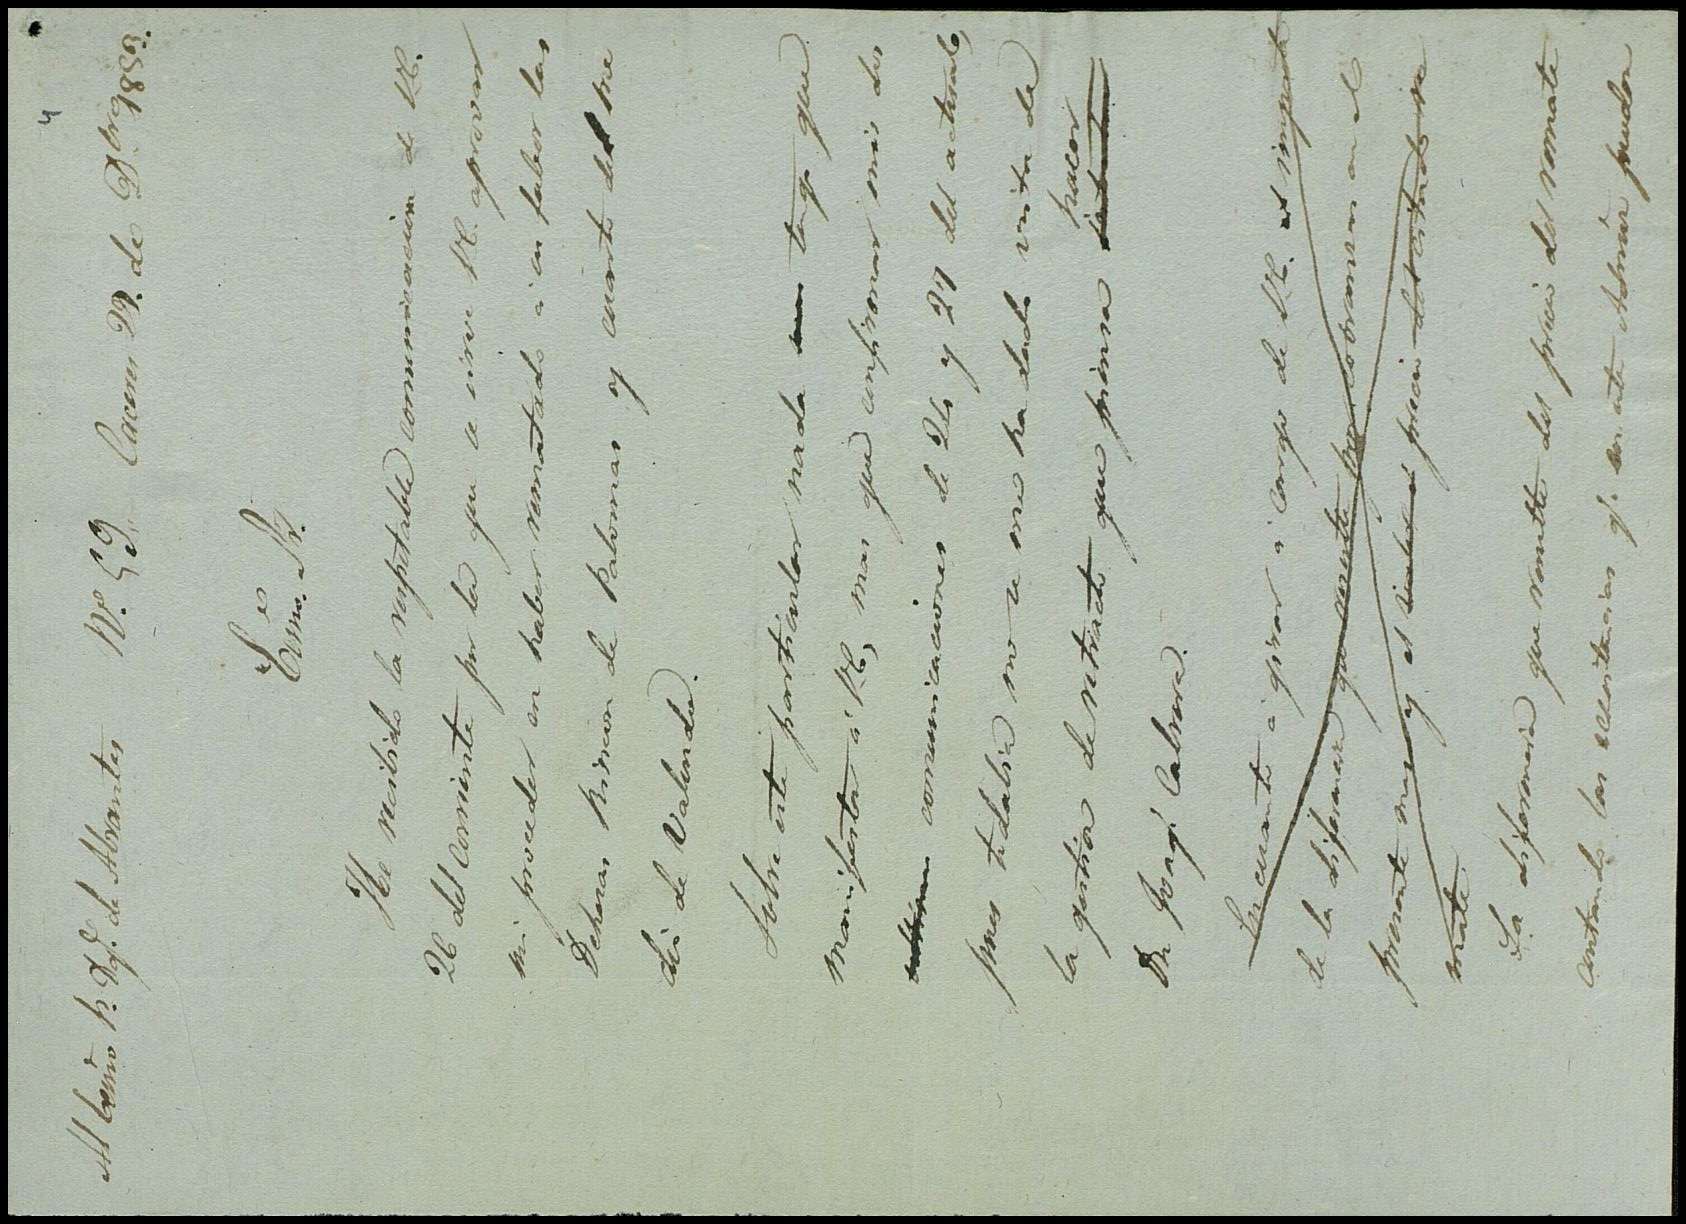 Al Exmo Sr. Dq. de Abrantes Nº 53 Caceres 29. de Dbre 1855
Exmo. Sr.
He recibido la respetable comunicacion de V.E.
26 del Corriente por la que se sirve V.E. aprovar
mi proceder en haber rematado a su fabor las
Dehesas Rincon de Palomas y cuarto del
dio de Valverde.
Sobre este particular nada tengo que
manifestar á V.E, mas que confirmar mis dos
comunicaciones de 24 y 27 del actual,
pues todabia no se me ha dado vista de
la peticion de retracto que piensa hacer
Dn Jorge Cabrera.
En cuanto á girar a cargo de V.E. el importe
de la diferencia que resulte por cobranzas en el
presente mes y el precio del citado re
mate
La diferencia que resulte del precio del remate
contando las ecsistencias qe. en esta Admon puedan